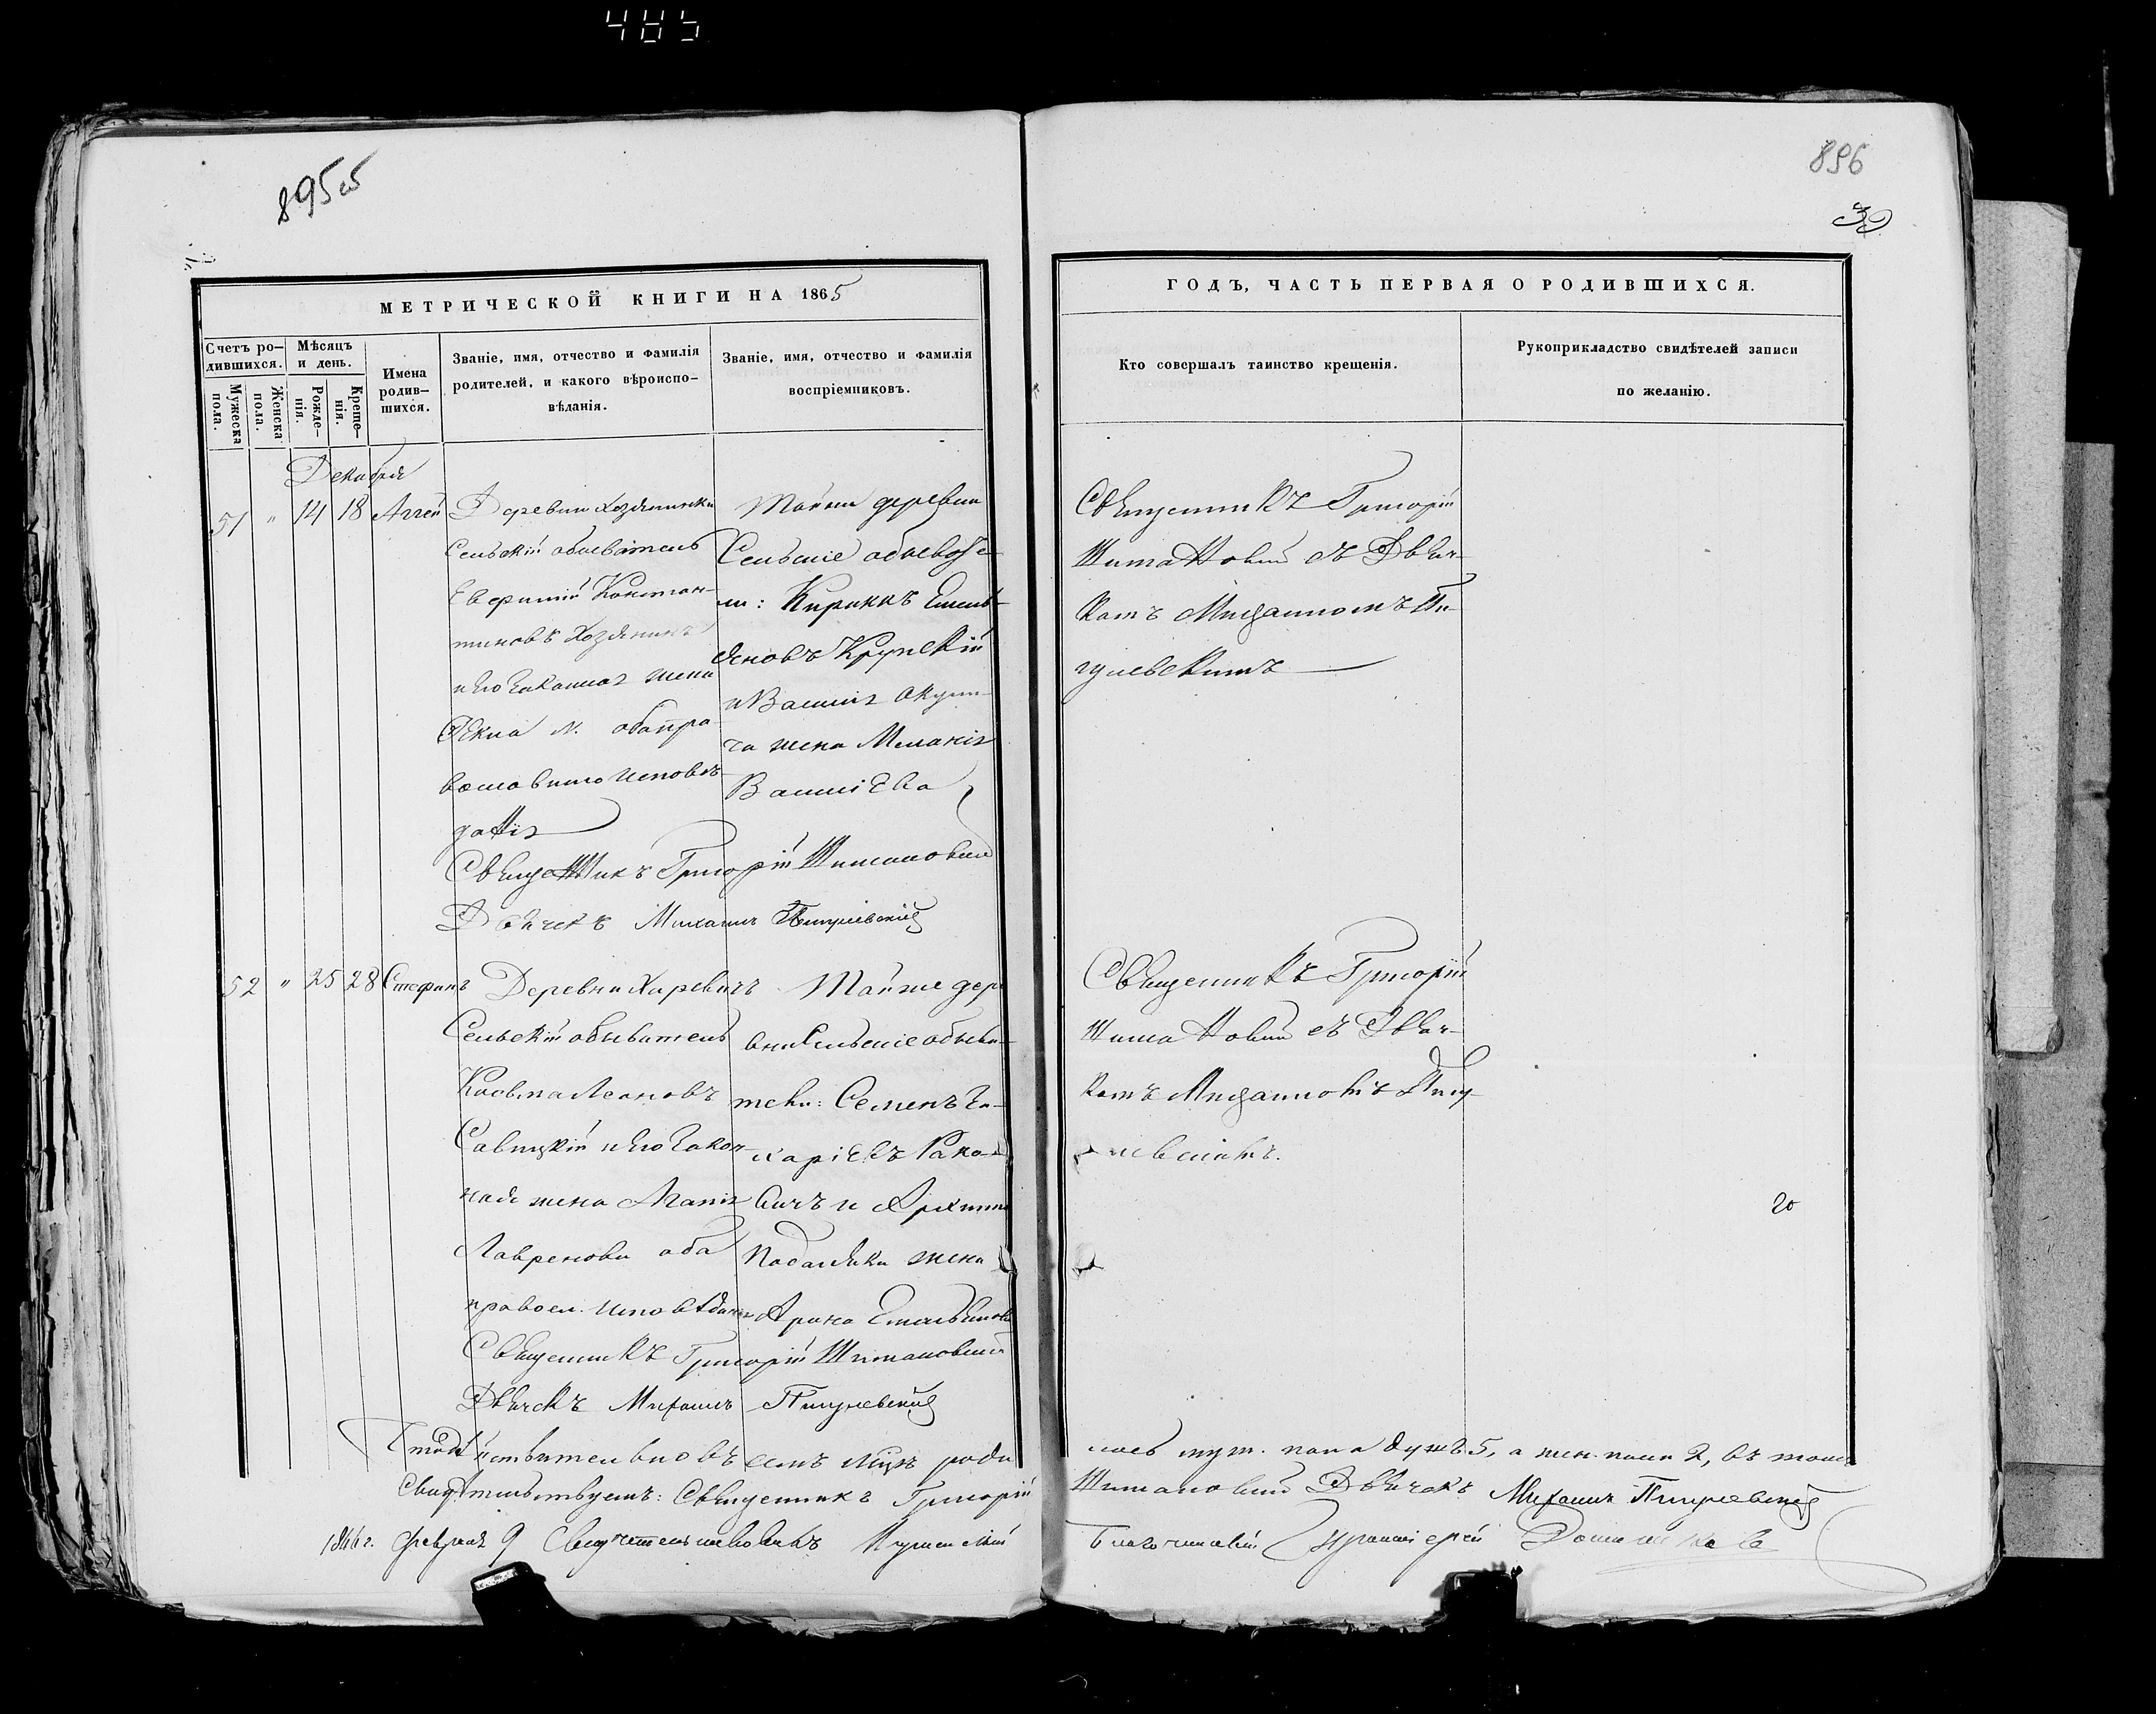 485
895 об
896
30
МЕТРИЧЕСКОЙ КНИГИ НА 1865
ГОДЪ, ЧАСТЬ ПЕРВАЯ О РОДИВШИХСЯ.
Счетъ ро-
дившихся.
Мужеска
пола.
Женска
пола.
Мѣсяцъ
и день.
Рожде-
нія.
Креще-
нія.
Имена
родив-
шихся.
Званіе, имя, отчество и фамилія
родителей, и какого вѣроиспо-
вѣданія.
Званіе, имя, отчество и фамилія
воспріемниковъ.
Кто совершалъ таинство крещенія.
Рукоприкладство свидѣтелей записи
по желанію.
Декабря
51 " 14 18 Аггей
Деревни
Сельскій обыватель
Евфимій Констан-
тиновъ
и его законная жена
Ѳекла М. оба пра
вославнаго исповѣ-
данія
деревни
Сельскіе обывате-
ли: Кирикъ Емель-
яновъ Крупскій
и Василія
жена Меланія
Васильева
Священникъ Григорій Шимановскій
Дьячекъ Михаилъ Пигулевскій
Священникъ Григорій
Шимановскій съ Дьяч-
комъ Михаиломъ Пи-
гулевскимъ
52 " 25 28 Стефанъ
Деревни Харевичъ
Сельскій обыватель
Косьма Леоновъ
Савицкій и его закон-
ная жена Агапія
Лавренова оба
правосл. исповѣданія
Той же дере
вни Сельскіе обыва-
тели: Семенъ За-
харіевъ Рако-
вичъ и Архипа
жена
Арина Емельянова
Священникъ Григорій Шимановскій
Дьячекъ Михаилъ Пигулевскій
Священникъ Григорій
Шимановскій съ Дьяч-
комъ Михаиломъ Пигу-
левскимъ.
Что дѣйствительно въ семъ мѣсяцѣ роди
лось муж. пола душъ 5, а жен. пола 2, въ томъ
Свидѣтельствуемъ: Священникъ Григорій
Шимановскій Дьячекъ Михаилъ Пигулевскій
1866 г. Февраля 9 Свидѣтельствовалъ
Благочинный